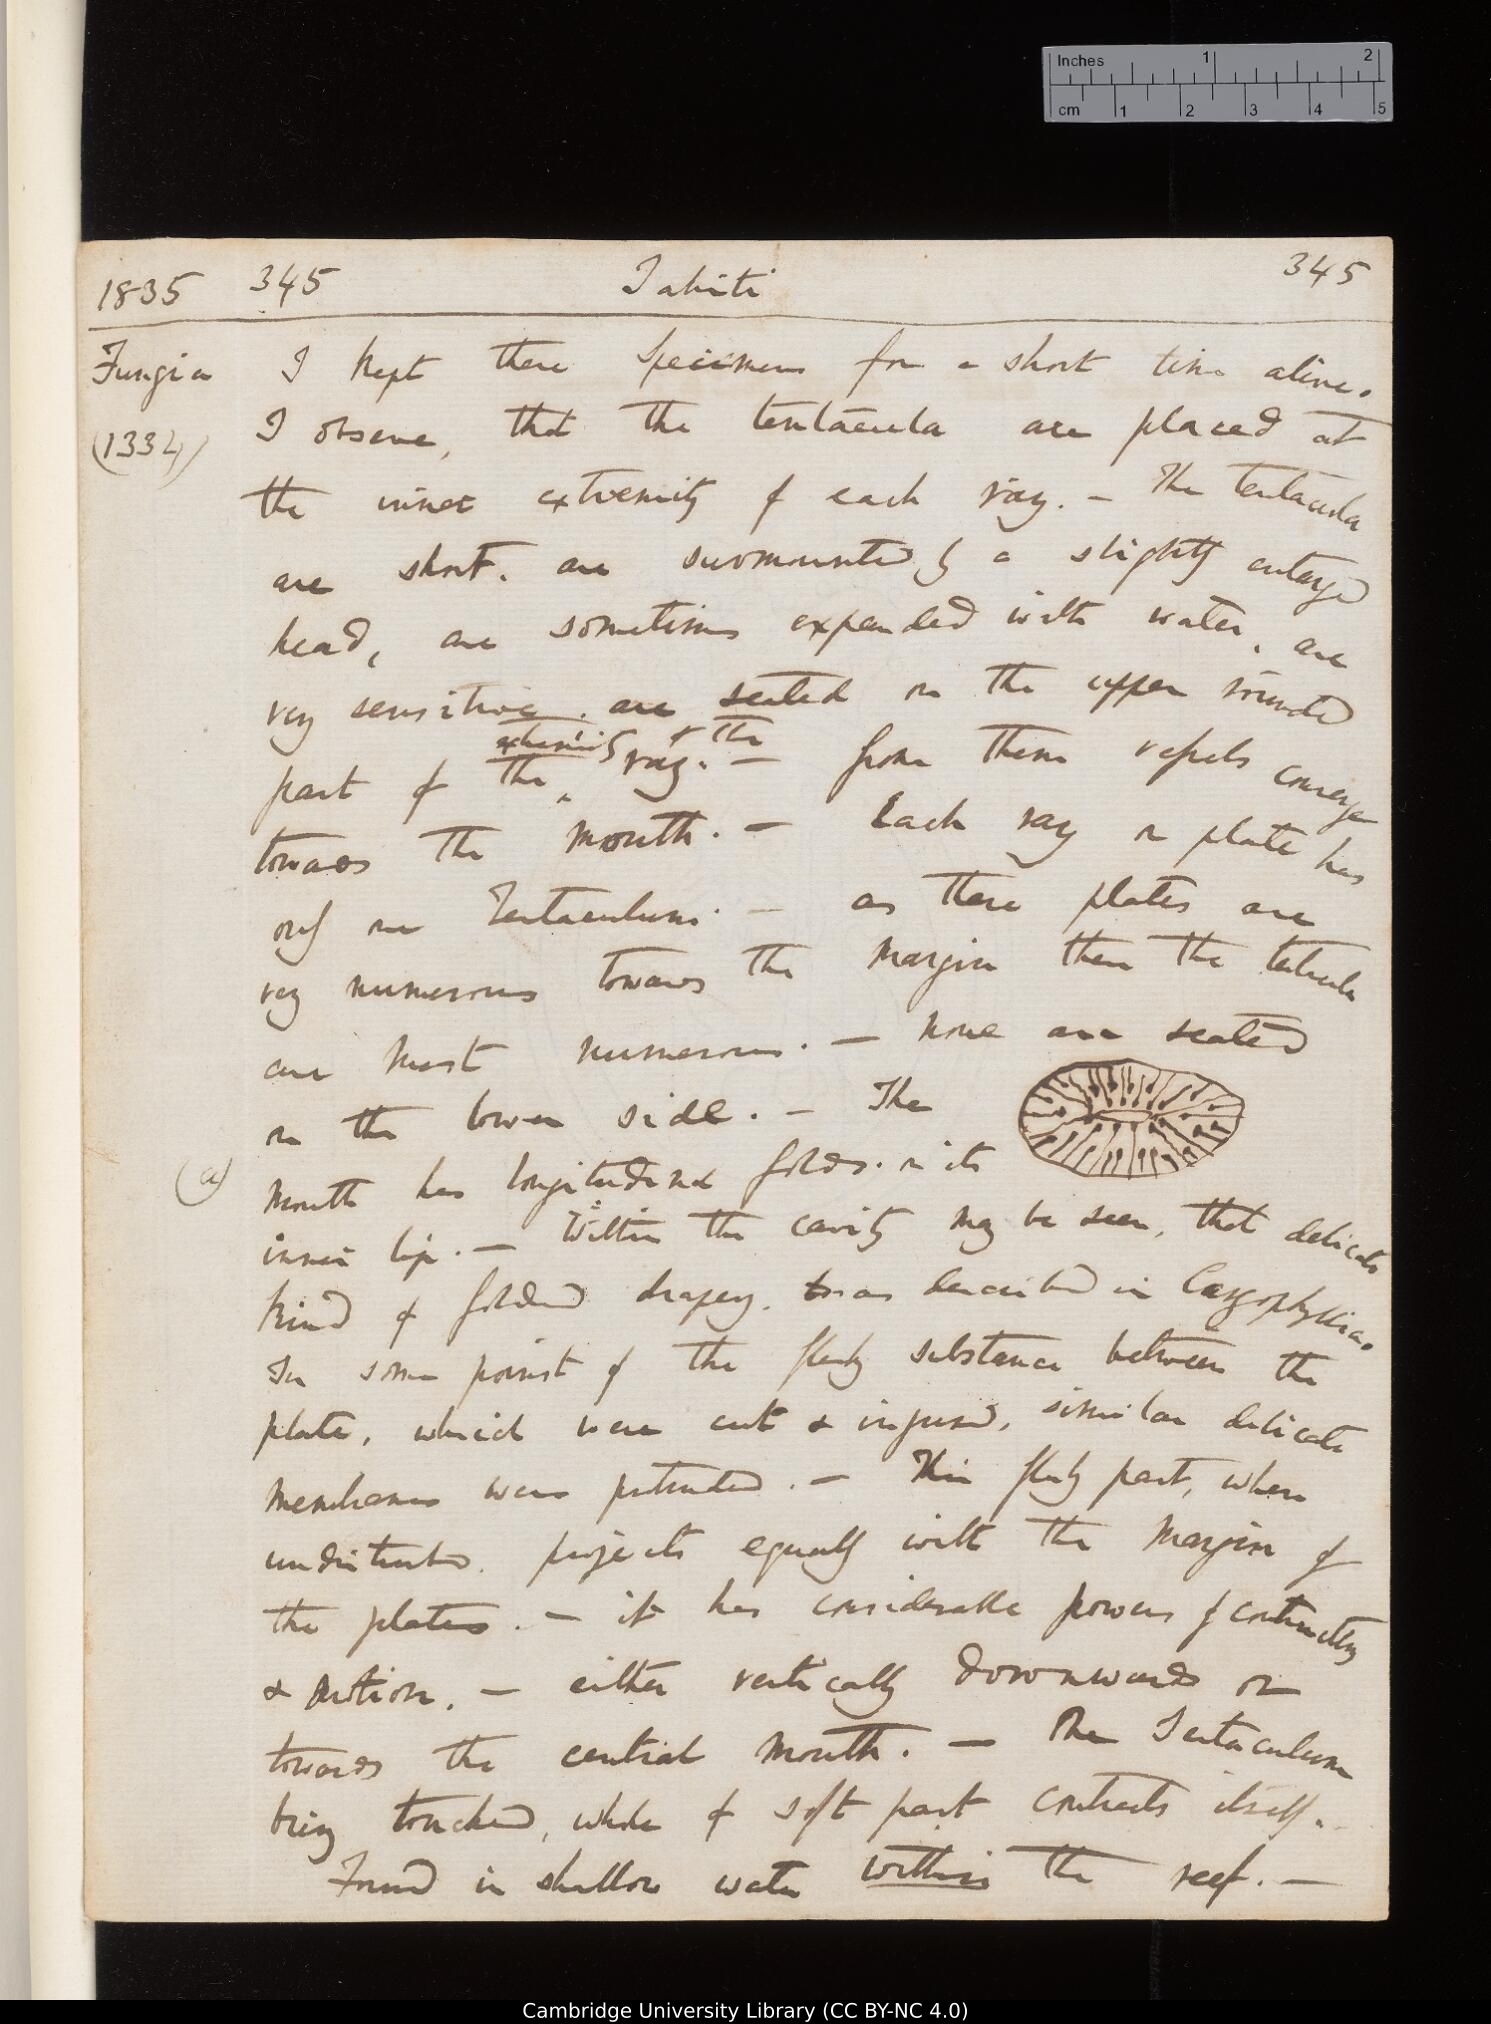 Inches 1 2
cm 1 2 3 4 5
1835 345 Tahiti 345
Fungia I kept these specimens for a short time alive.
(1334) I observe, that the tentacula are placed at
the inner extremity of each ray. — The tentacula
are short. are surmounted by a slightly enlarged
head, are sometimes expanded with water, are
very sensitive. are seated on the upper rounded
extremity of the
part of the ray. — from them vessels converge
towards the mouth. — Each ray or plate has
only one Tentaculum. — as these plates are
very numerous towards the margin there the tentacula
are most numerous. — none are seated
on the lower side. — The
(a) mouth has longitudinal folds. on its
inner lip. — Within the cavity may be seen, that delicate
kind of folded drapery. as described in Caryophyllia.
In some points of the fleshy substance between the
plate, which were cut & injured, similar delicate
membranes were protruded. — This fleshy part, when
undisturbed. projects equally with the margin of
the plates. — it has considerable powers of contractility
& motion. — either vertically downwards or
towards the central mouth. — The Tentaculum
being touched, whole of soft part contracts itself.
Found in shallow water within the reef. —
Cambridge University Library (CC BY-NC 4.0)